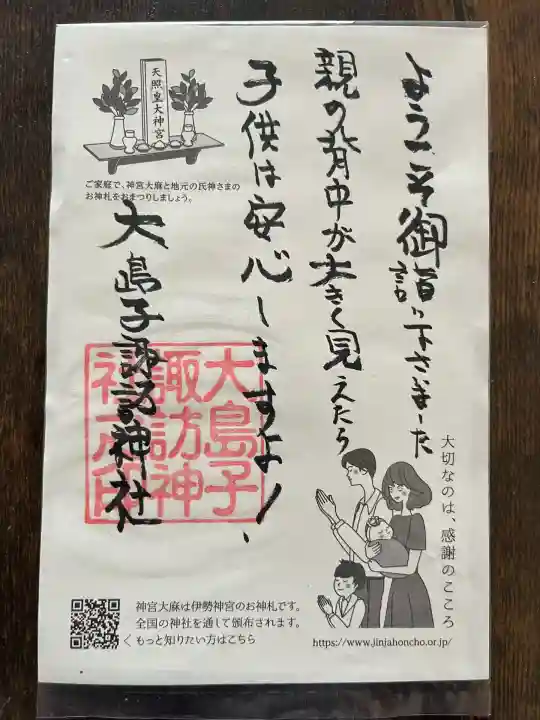 ようこそ御詣り下さいました
親の背中が大きく見えたら
子供は安心しますよ!、
大島子諏訪神社
大島子
諏訪神
社之印
天照皇大神宮
ご家庭で、神宮大麻と地元の氏神さまの
お神札をおまつりしましょう。
大切なのは、感謝のこころ
神宮大麻は伊勢神宮のお神札です。
全国の神社を通して頒布されます。
くもっと知りたい方はこちら
https://www.jinjahoncho.or.jp/